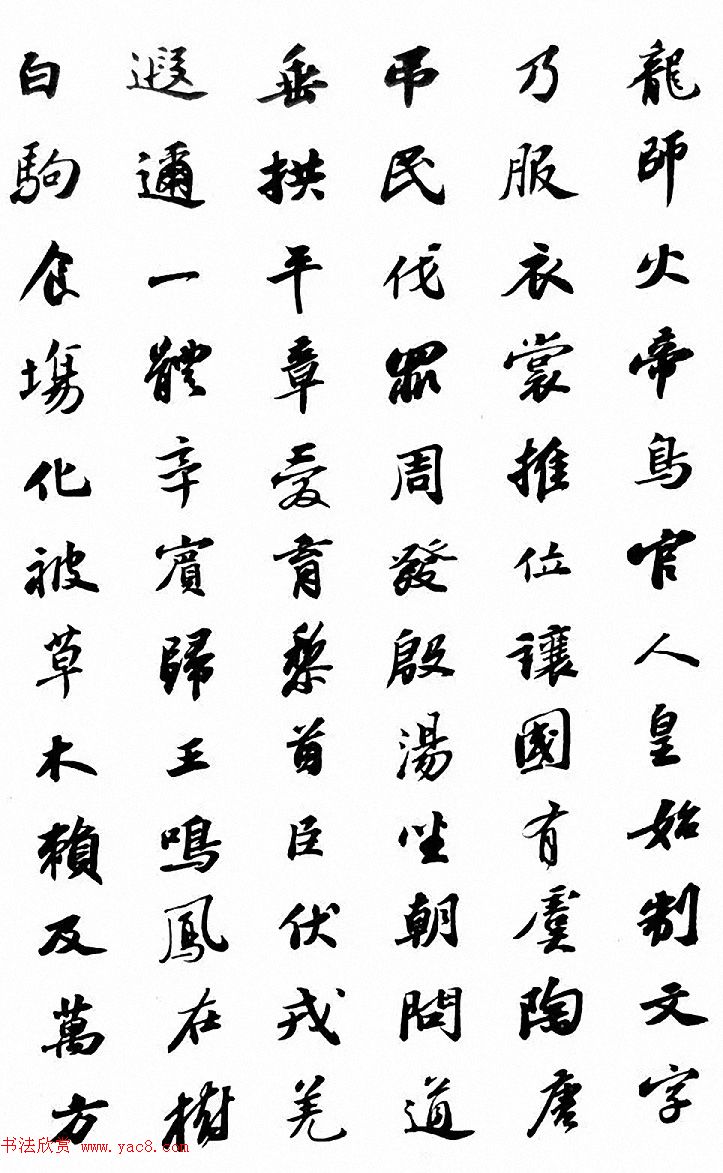 龍師火帝鳥官人皇始制文字
乃服衣裳推位讓國有虞陶唐
弔民伐罪周發殷湯坐朝問道
垂拱平章愛育黎首臣伏戎羌
遐邇一體辛賓歸王鳴鳳在樹
白駒食場化被草木賴及萬方
书法欣赏 www.yac8.com